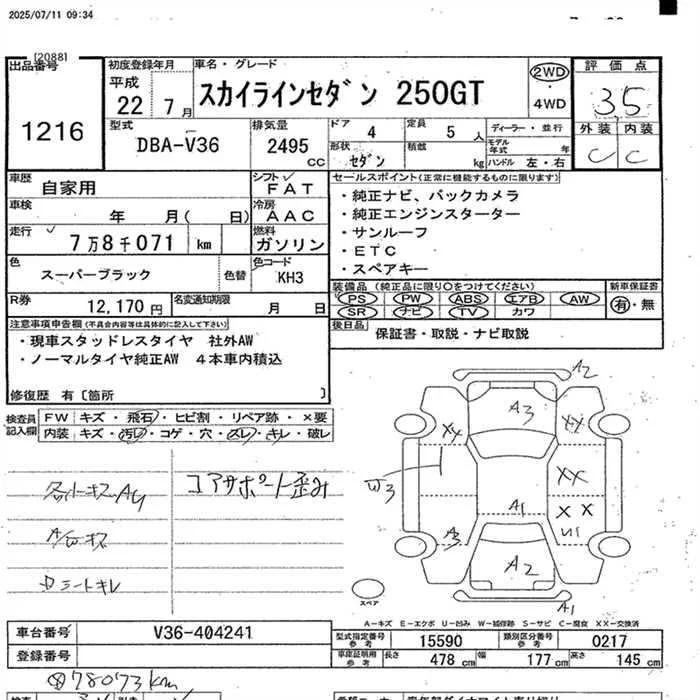 2025/07/11 09:34
[2088]
出品番号
1216
初度登録年月
平成
22 7月
車名・グレード
スカイラインセダン 250GT
2WD
・
4WD
評価点
3.5
外装 内装
C C
型式
DBA-V36
排気量
2495
cc
ドア 4
形状 セダン
定員 5 人
積載 kg
ディーラー・並行
モデル年式 年
ハンドル 左・右
車歴
自家用
シフト
FAT
車検
年 月( 日)
冷房
AAC
走行
7万8千071 km
燃料
ガソリン
色
スーパーブラック
色替
色コード
KH3
R券
12,170円
名変通知期限
月 日
セールスポイント(正常に機能するものに限ります)
・純正ナビ、バックカメラ
・純正エンジンスターター
・サンルーフ
・ETC
・スペアキー
装備品 (純正品に限り○をつけてください)
PS PW ABS エアB AW
SR ナビ TV カワ
新車保証書
有・無
後日品
保証書・取説・ナビ取説
注意事項申告欄(不具合内容等は具体的に記入して下さい)
・現車スタッドレスタイヤ 社外AW
・ノーマルタイヤ純正AW 4本車内積込
修復歴 有〔箇所 〕
検査員記入欄
FW キズ・飛石・ヒビ割・リペア跡・×要
内装 キズ・汚レ・コゲ・穴・スレ・キレ・破レ
コアサポート歪み
シートキレ
A2
A3
XX XX
W3
XX
A1
X X
A3
U1
A2
A1
スペア
A-キズ E-エクボ U-凹み W-補修跡 S-サビ C-腐食 XX-交換済
車台番号
V36-404241
登録番号
型式指定番号 参考
15590
類別区分番号 参考
0217
車庫証明用 参考
長さ 478 cm
幅 177 cm
高さ 145 cm
78073km